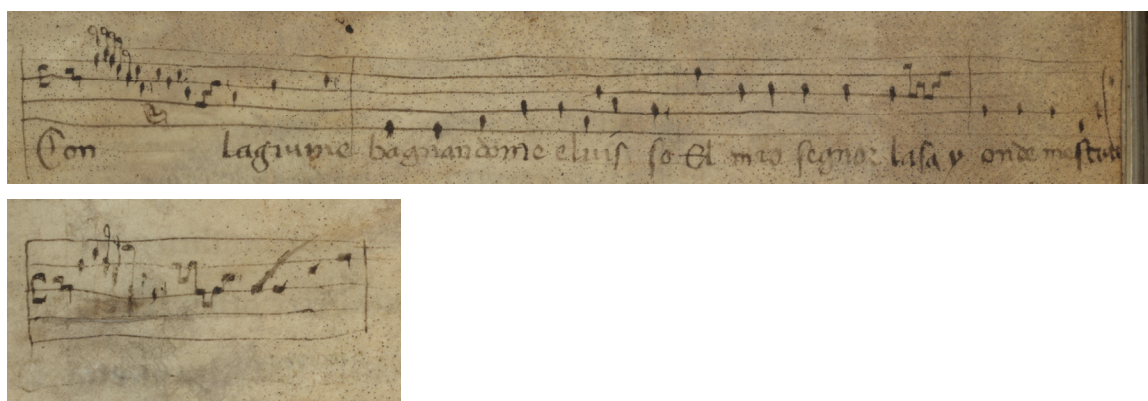 Con lagrime bagnandome el uis so El mio segnor lasa y onde me